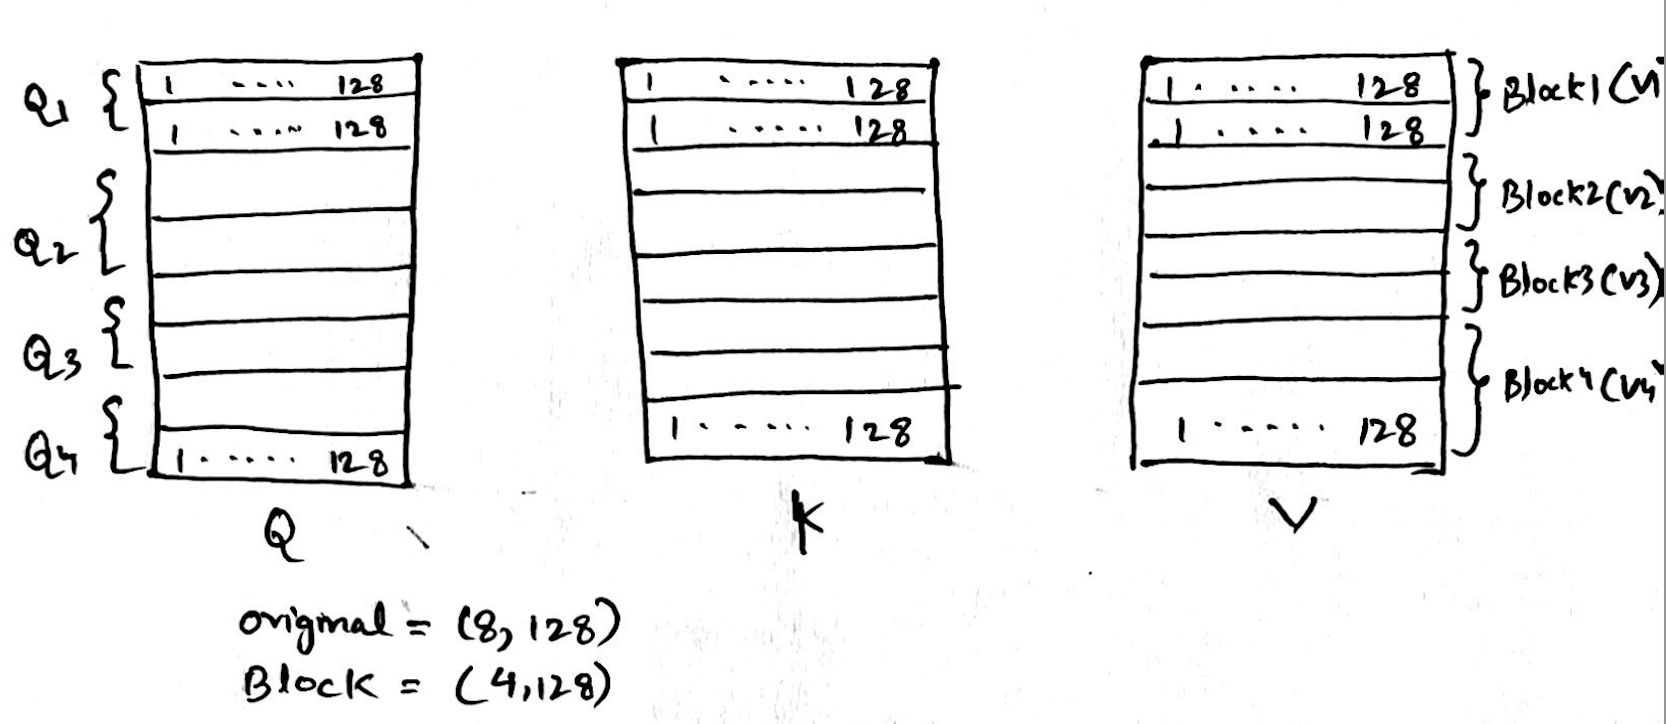 Q1 { 1 .... 128
1 ..... 128
Q2 {
Q3 {
Q4 {
1 ..... 128
Q
1 ..... 128
1 ..... 128
1 ..... 128
K
1 ..... 128 } Block1 (V1
1 .... 128
} Block2 (V2)
} Block3 (V3)
} Block4 (V4
1 ..... 128
V
original = (8, 128)
Block = (4,128)